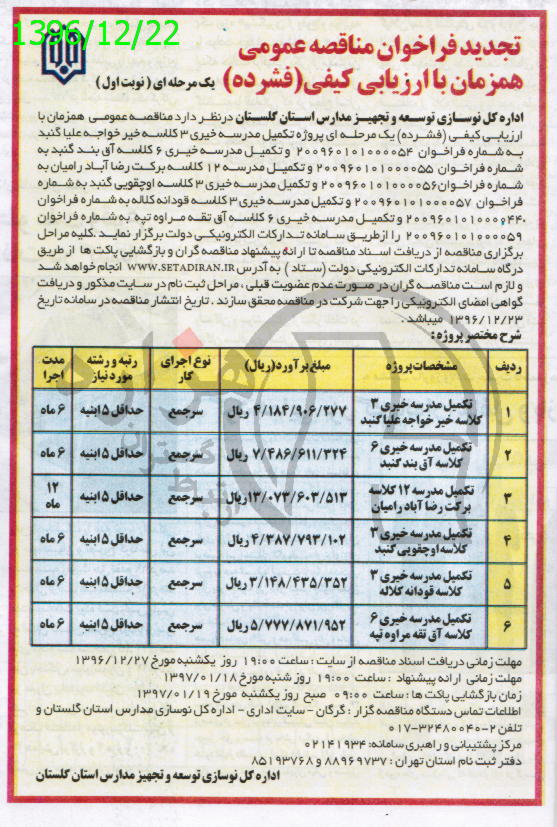 1396/12/22
تجدید فراخوان مناقصه عمومی
همزمان با ارزیابی کیفی (فشرده) یک مرحله ای (نوبت اول)
اداره کل نوسازی توسعه و تجهیز مدارس استان گلستان در نظر دارد مناقصه عمومی همزمان با
ارزیابی کیفی (فشرده) یک مرحله ای پروژه تکمیل مدرسه خیری ۳ کلاسه خیر خواجه علیا گنبد
به شماره فراخوان ۲۰۰۹۶۰۱۰۱۰۰۰۰۵۴ و تکمیل مدرسه خیری ۶ کلاسه آق بند گنبد به
شماره فراخوان ۲۰۰۹۶۰۱۰۱۰۰۰۰۵۵ و تکمیل مدرسه ۱۲ کلاسه برکت رضا آباد رامیان به
شماره فراخوان ۲۰۰۹۶۰۱۰۱۰۰۰۰۵۶ و تکمیل مدرسه خیری ۳ کلاسه اوچقویی گنبد به شماره
فراخوان ۲۰۰۹۶۰۱۰۱۰۰۰۰۵۷ و تکمیل مدرسه خیری ۳ کلاسه قودانه کلاله به شماره فراخوان
و تکمیل مدرسه خیری ۶ کلاسه آق تقه مراوه تپه به شماره فراخوان
۲۰۰۹۶۰۱۰۱۰۰۰۰۵۹ را از طریق سامانه تدارکات الکترونیکی دولت برگزار نماید. کلیه مراحل
برگزاری مناقصه از دریافت اسناد مناقصه تا ارائه پیشنهاد مناقصه گران و بازگشایی پاکت ها از طریق
درگاه سامانه تدارکات الکترونیکی دولت (ستاد) به آدرس WWW.SETADIRAN.IR انجام خواهد شد
و لازم است مناقصه گران در صورت عدم عضویت قبلی، مراحل ثبت نام در سایت مذکور و دریافت
گواهی امضای الکترونیکی را جهت شرکت در مناقصه محقق سازند. تاریخ انتشار مناقصه در سامانه تاریخ
۱۳۹۶/۱۲/۲۳ میباشد.
شرح مختصر پروژه:
ردیف مشخصات پروژه مبلغ برآورد (ریال) نوع اجرای کار رتبه و رشته مورد نیاز مدت اجرا
۱ تکمیل مدرسه خیری ۳ کلاسه خیر خواجه علیا گنبد ۴/۱۸۴/۹۰۶/۲۷۷ ریال سرجمع حداقل ۵ ابنیه ۶ ماه
۲ تکمیل مدرسه خیری ۶ کلاسه آق بند گنبد ۷/۴۸۶/۶۱۱/۳۲۴ ریال سرجمع حداقل ۵ ابنیه ۶ ماه
۳ تکمیل مدرسه ۱۲ کلاسه برکت رضا آباد رامیان ۱۳/۰۷۳/۶۰۳/۵۱۳ ریال سرجمع حداقل ۵ ابنیه ۱۲ ماه
۴ تکمیل مدرسه خیری ۳ کلاسه اوچقویی گنبد ۴/۳۸۷/۷۹۳/۱۰۲ ریال سرجمع حداقل ۵ ابنیه ۶ ماه
۵ تکمیل مدرسه خیری ۳ کلاسه قودانه کلاله ۳/۱۴۸/۴۳۵/۳۵۲ ریال سرجمع حداقل ۵ ابنیه ۶ ماه
۶ تکمیل مدرسه خیری ۶ کلاسه آق تقه مراوه تپه ۵/۷۷۷/۸۷۱/۹۵۲ ریال سرجمع حداقل ۵ ابنیه ۶ ماه
مهلت زمانی دریافت اسناد مناقصه از سایت: ساعت ۱۹:۰۰ روز یکشنبه مورخ ۱۳۹۶/۱۲/۲۷
مهلت زمانی ارائه پیشنهاد: ساعت ۱۹:۰۰ روز شنبه مورخ ۱۳۹۷/۰۱/۱۸
زمان بازگشایی پاکت ها: ساعت ۰۹:۰۰ صبح روز یکشنبه مورخ ۱۳۹۷/۰۱/۱۹
اطلاعات تماس دستگاه مناقصه گزار: گرگان - سایت اداری - اداره کل نوسازی مدارس استان گلستان و
تلفن ۲-۳۲۴۸۰۰۴۰-۰۱۷
مرکز پشتیبانی و راهبری سامانه: ۰۲۱۴۱۹۳۴
دفتر ثبت نام استان تهران: ۸۸۹۶۹۷۳۷ و ۸۵۱۹۳۷۶۸
اداره کل نوسازی توسعه و تجهیز مدارس استان گلستان